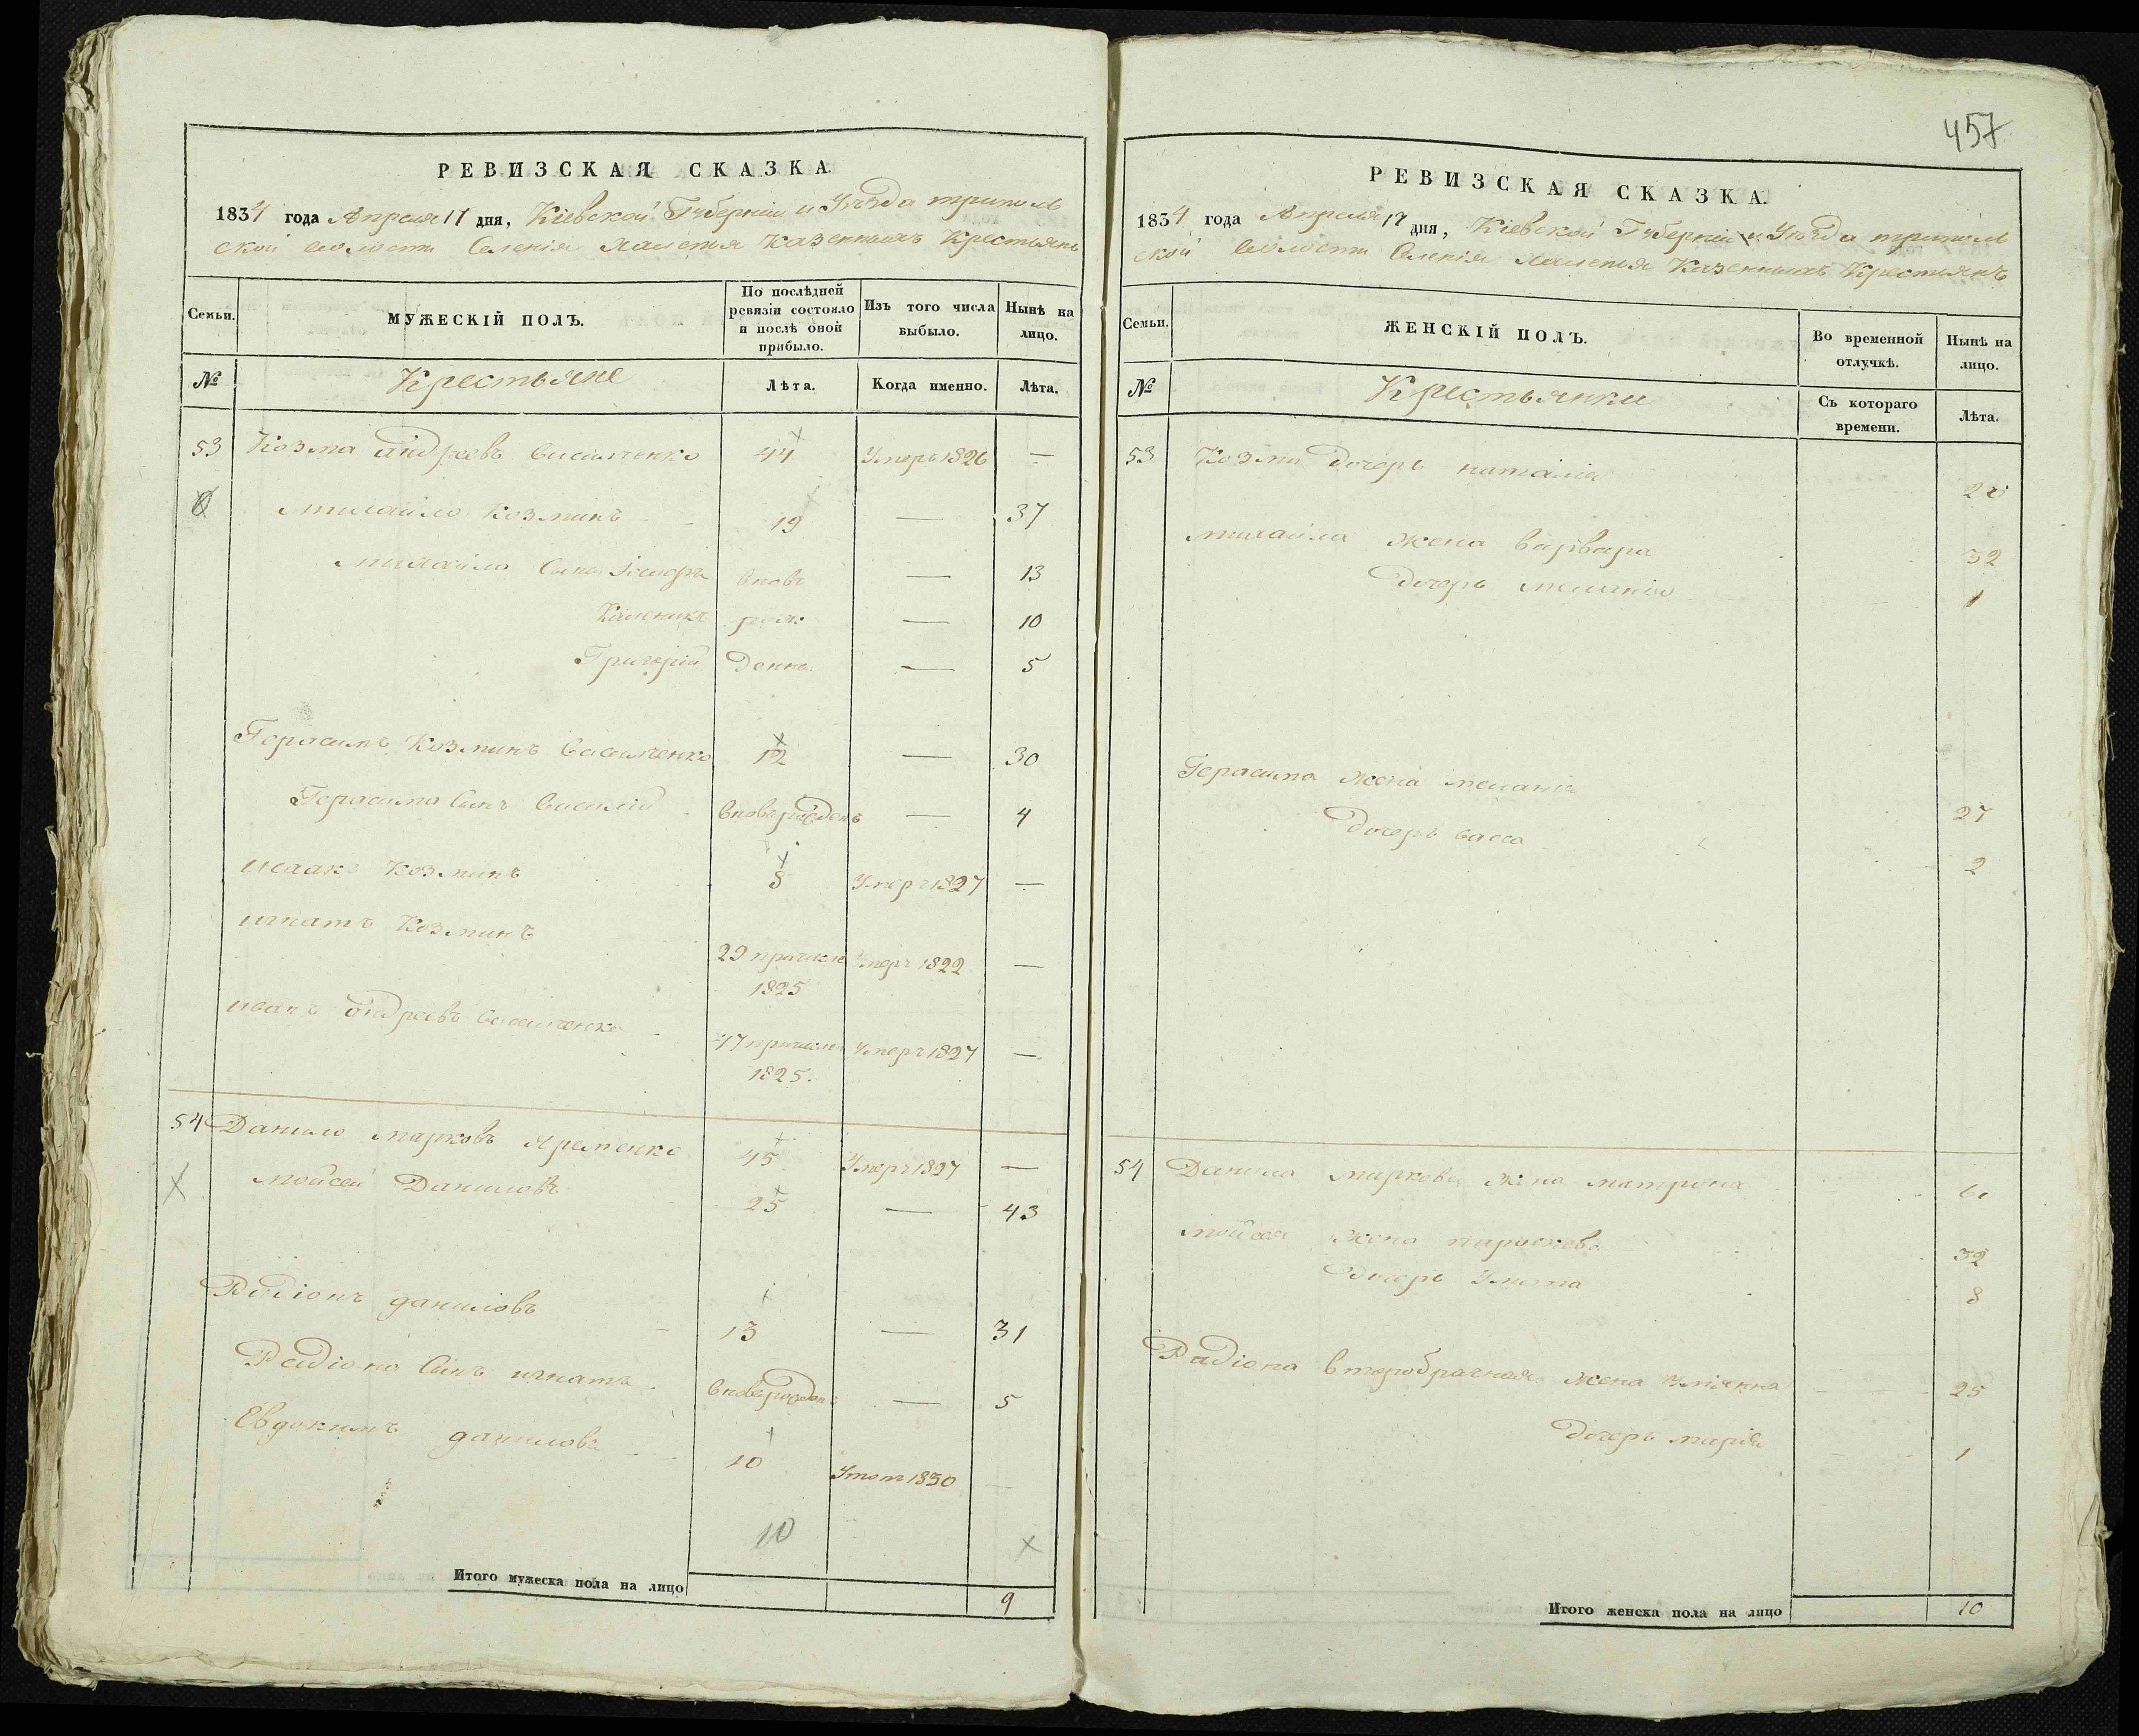 457
РЕВИЗСКАЯ СКАЗКА.
1834 года Апреля 17 дня, Кіевской Губерніи и Уѣзда триполь
ской волости Селенія Халепья Казенныхъ Крестьянъ
Семьи.
МУЖЕСКІЙ ПОЛЪ.
По послѣдней ревизіи состояло и послѣ оной прибыло.
Изъ того числа выбыло.
Нынѣ на лицо.
№
Крестьяне
Лѣта.
Когда именно.
Лѣта.
53 Козма андреевъ Василченко 44 Умеръ 1826 —
михайло Козминъ 19 — 37
михайло Сынъ вновь — 13
Каленикъ рож — 10
Григорій Денна — 5
Герасимъ Козминъ Василченко 12 — 30
Герасима Сынъ Василій вноврожденъ — 4
исаакъ Козминъ 8 Умеръ 1827 —
игнатъ Козминъ 29 причисле 1825 Умеръ 1822 —
иванъ андреевъ Василченко 47 причислен 1825. Умеръ 1827 —
54 Данило марковъ Яременко 45 Умеръ 1827 —
мойсей Даниловъ 25 — 43
Радіонъ даниловъ 13 — 31
Радіона Сынъ игнатъ вноврожденъ — 5
Евдокимъ даниловъ 10 1830
10
Итого мужеска пола на лицо 9
РЕВИЗСКАЯ СКАЗКА.
1834 года Апреля 17 дня, Кіевской Губерніи и Уѣзда триполь
ской волости Селенія Халепья Казенныхъ Крестьянъ
Семьи.
ЖЕНСКІЙ ПОЛЪ.
Во временной отлучкѣ.
Нынѣ на лицо.
№
Крестьянки
Съ котораго времени.
Лѣта.
53 Козми дочерь наталія
михайла жена варвара 32
дочерь меланія 1
Герасима жена меланія 27
дочерь васса 2
54 Данила маркова жена матрона
мойсея жена параскева 32
дочерь 8
Радіона второбрачная жена Уліянна 25
дочерь марія 1
Итого женска пола на лицо 10